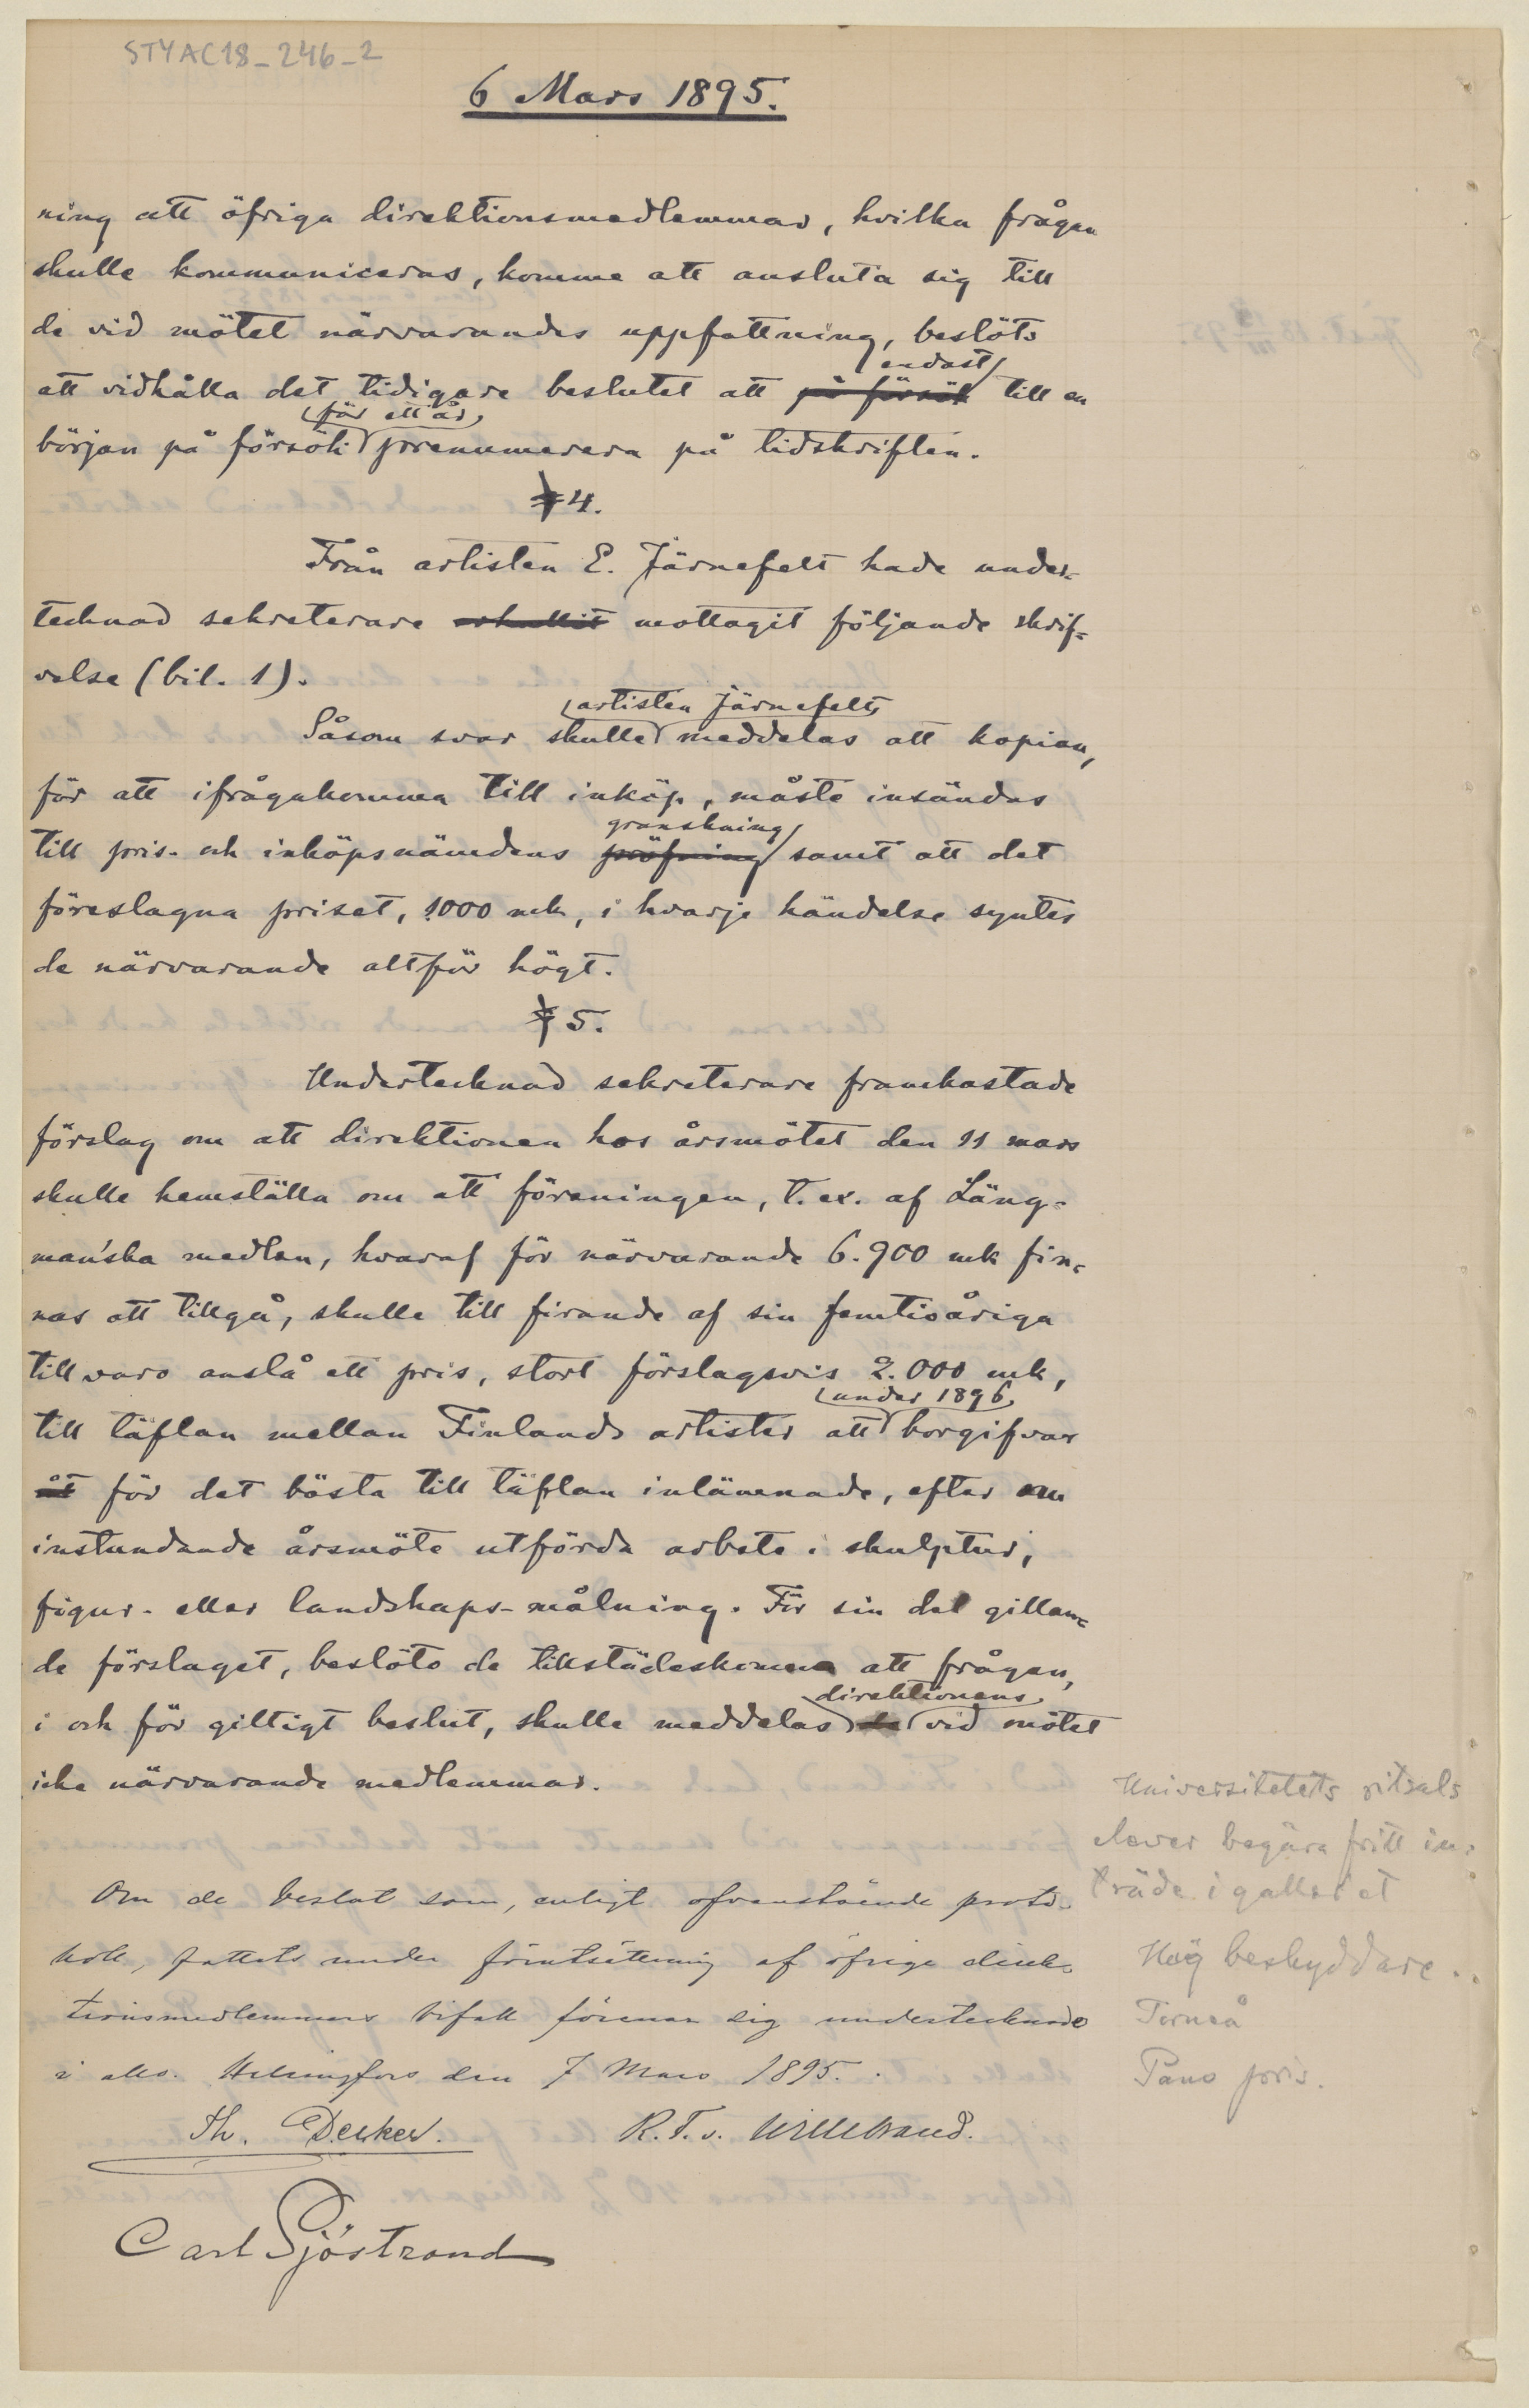 STYAC18_246_2
6 Mars 1895.
ning att öfriga direktionsmedlemmar, hvilka frågan
skulle kommuniceras, komme att ansluta sig till
de vid mötet närvarandes uppfattning, beslöts
endast
att vidhålla det tidigare beslutet att på försök till en
för ett år
början på försök prenumerera på tidskriften.
§ 4.
Från artisten E. Järnefelt hade under-
tecknad sekreterare erhållit mottagit följande skrif-
velse (bil. 1).
artisten Järnefelt
Såsom svar skulle meddelas att kopian,
för att ifrågakomma till inköp, måste insändas
granskning
till pris- och inköpsnämdens pröfning samt att det
föreslagna priset, 1000 mk, i hvarje händelse syntes
de närvarande alltför högt.
§ 5.
Undertecknad sekreterare framkastade
förslag om att direktionen hos årsmötet den 11 mars
skulle hemställa om att föreningen, t. ex. af Läng-
man'ska medlen, hvaraf för närvarande 6.900 mk fin-
nas att tillgå, skulle till firande af sin femtioåriga
tillvaro anslå ett pris, stort förslagsvis 2.000 mk,
under 1896
till täflan mellan Finlands artister att borgifvas
åt för det bästa till täflan inlämnade, efter
instundande årsmöte utförda arbete i skulptur,
figur- eller landskaps-målning. För sin del gillan-
de förslaget, beslöto de tillstädeskomna att frågan,
direktionens
i och för giltigt beslut, skulle meddelas de vid mötet
icke närvarande medlemmar.
Om de beslut som, enligt ofvanstående proto-
koll, fattats under förutsättning af öfriga direk-
tionsmedlemmars bifall förenar sig undertecknade
i allo. Helsingfors den 7 Mars 1895.
Th. Decker. R. F. v. Willebrand.
Carl Sjöstrand
Universitetets ritsals
elever begära fritt in-
träde i galleriet
Hög beskyddare..
Torneå
Pano pris.